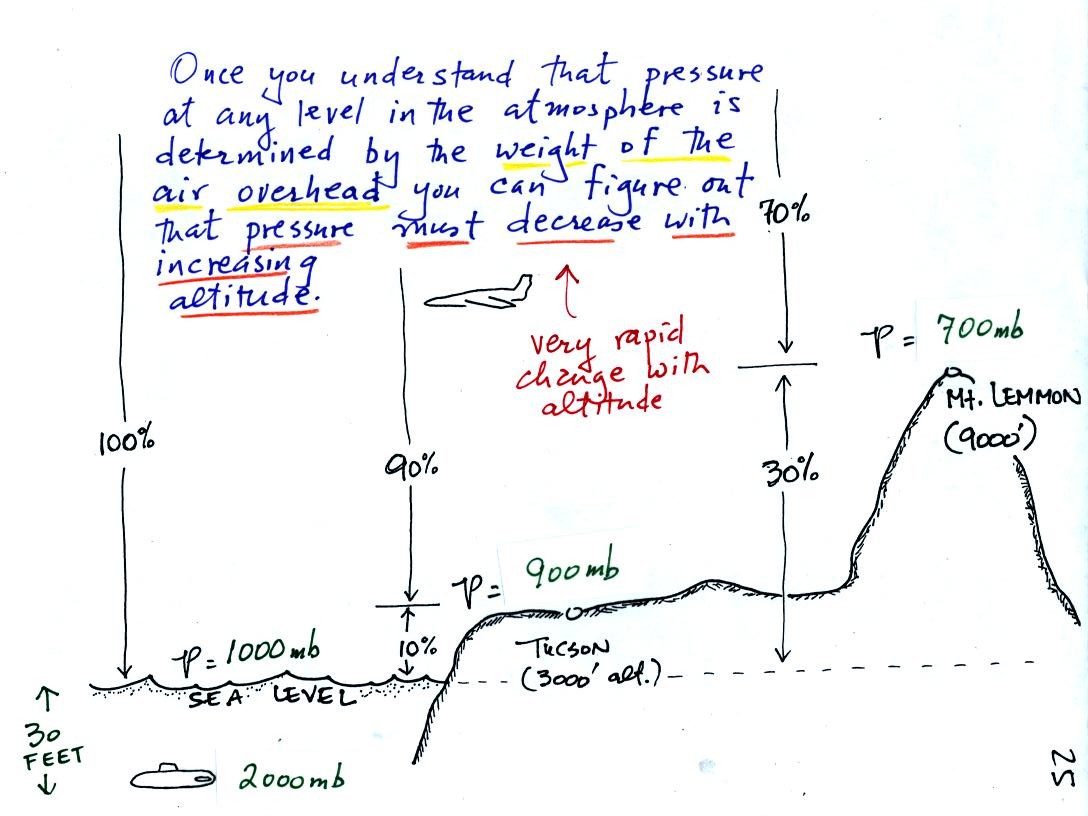 Once you understand that pressure
at any level in the atmosphere is
determined by the weight of the
air overhead you can figure out
that pressure must decrease with
increasing
altitude.
70%
very rapid
change with
altitude
P = 700mb
Mt. LEMMON
(9000')
100%
90%
30%
P = 900mb
10%
TUCSON
(3000' alt.)
P = 1000mb
SEA LEVEL
30
FEET
2000mb
25